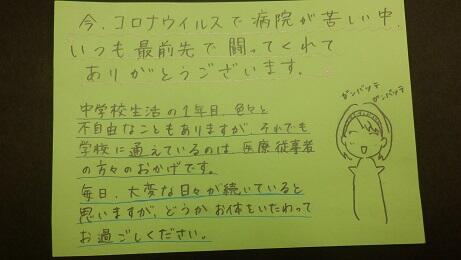 今、コロナウイルスで病院が苦しい中、
いつも最前先で闘ってくれて
ありがとうございます。
中学校生活の1年目、色々と
不自由なこともありますが、それでも
学校に通えているのは、医療従事者
の方々のおかげです。
毎日、大変な日々が続いていると
思いますが、どうかお体をいたわって
お過ごしください。
ガンバッテ
ガンバッテ